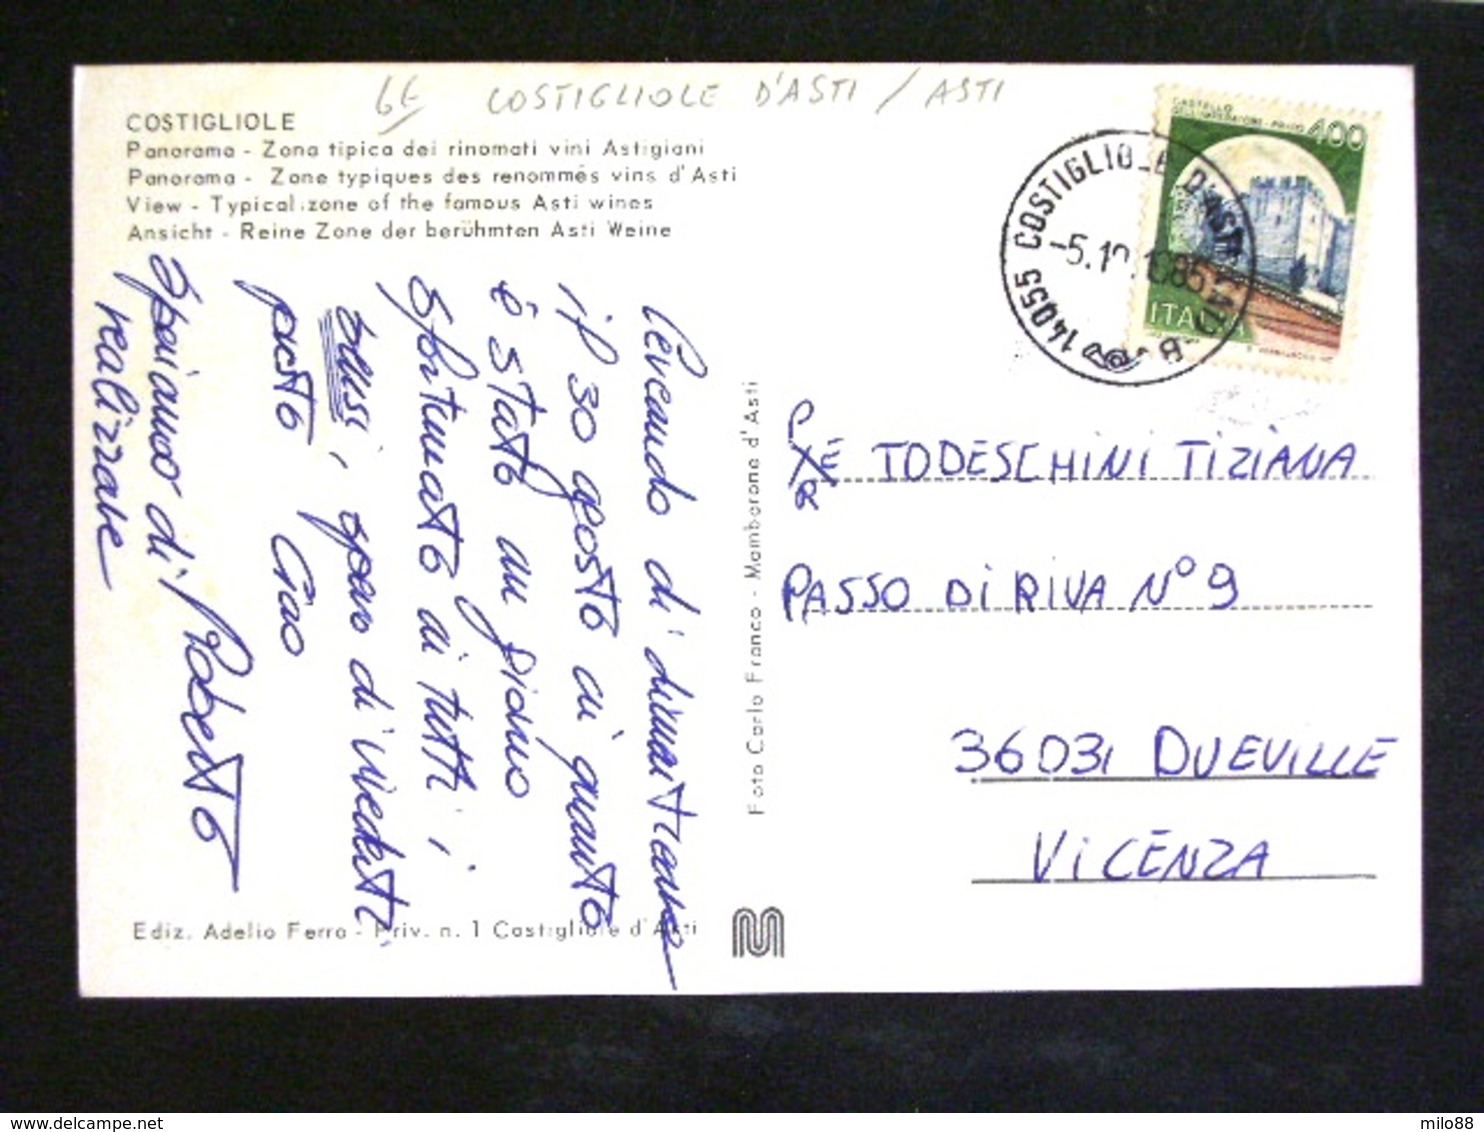 6E COSTIGLIOLE D'ASTI / ASTI
COSTIGLIOLE
Panorama - Zona tipica dei rinomati vini Astigiani
Panorama - Zone typiques des renommés vins d'Asti
View - Typical zone of the famous Asti wines
Ansicht - Reine Zone der berühmten Asti Weine
Cercando di dimenticare
il 30 agosto in quanto
è stato un giorno
sfortunato di tutti i
sensi, spero di vederti
presto Ciao
Roberto
Speriamo di
realizzare
Ediz. Adelio Ferro - Priv. n. 1 Costigliole d'Asti
Foto Carlo Franco - Momborone d'Asti
CASTELLO
DELL'IMPERATORE - PRATO 400
ITALIA
14055 COSTIGLIOLE D'ASTI
-5.10.1985
TODESCHINI TIZIANA
PASSO DI RIVA N° 9
36031 DUEVILLE
VICENZA
milo88